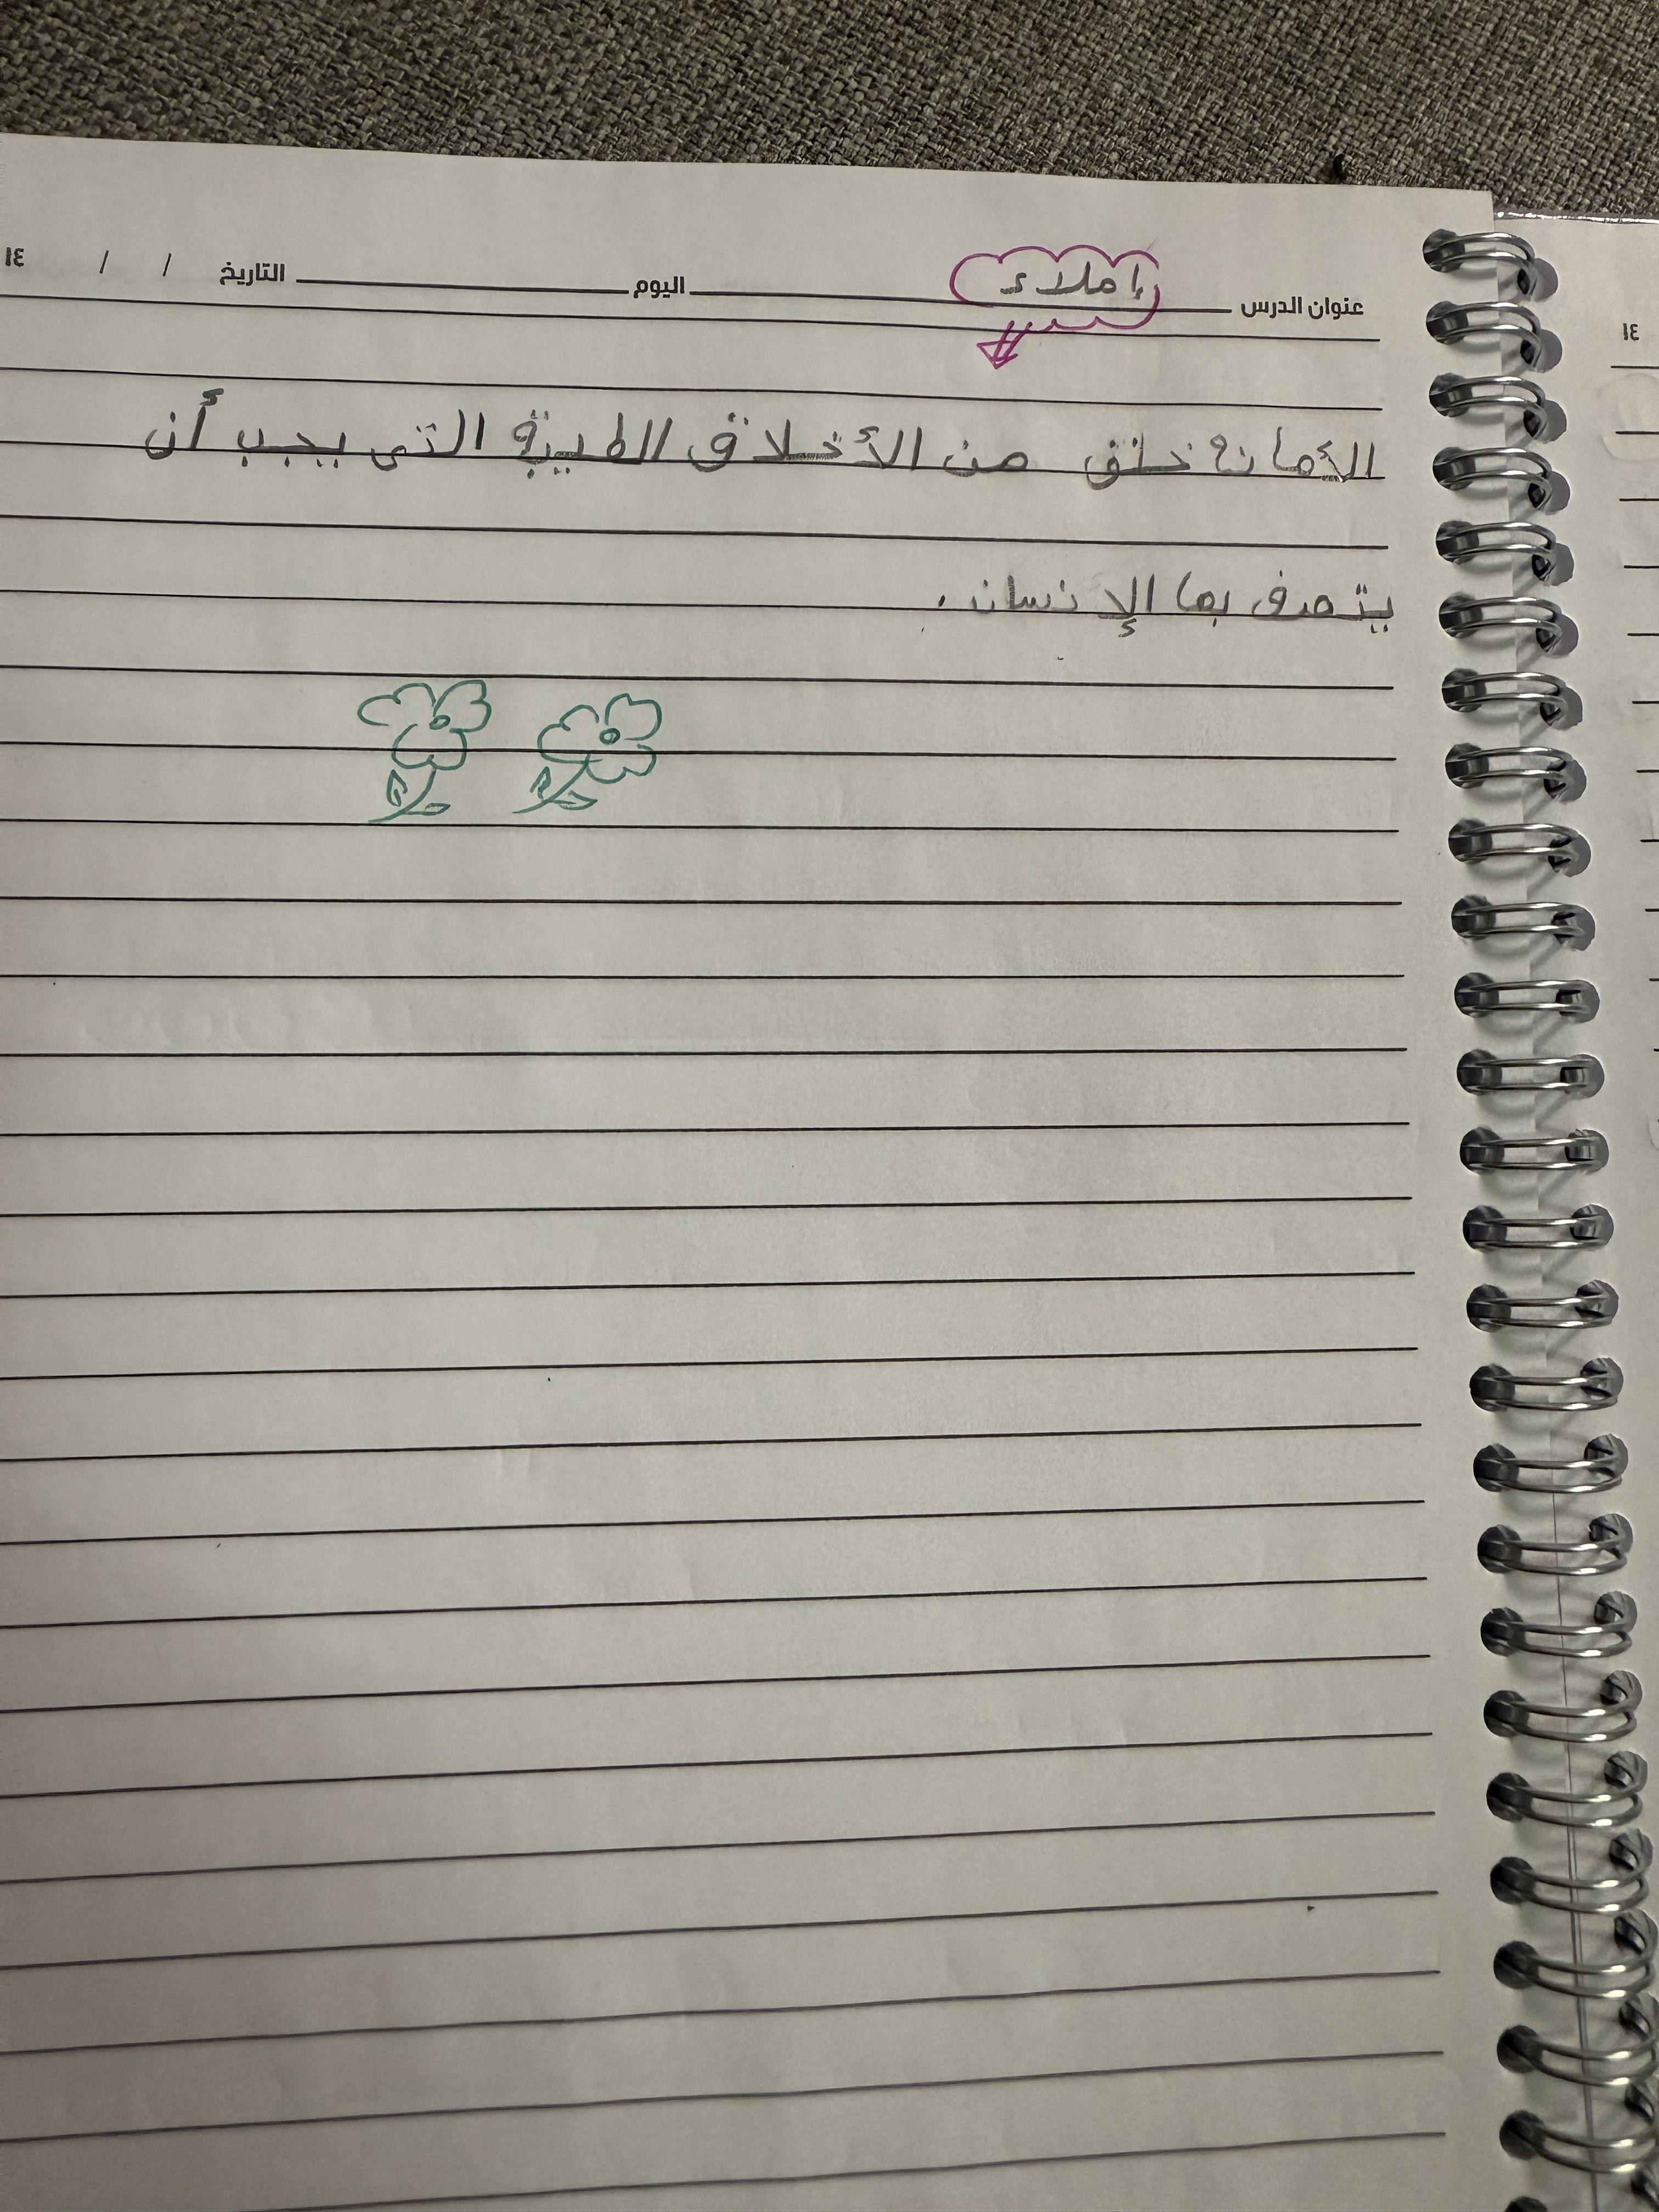 عنوان الدرس إملاء اليوم التاريخ / / ١٤
الأمانة خلق من الأخلاق الطيبة التي يجب أن
يتصف بها الإنسان.
١٤